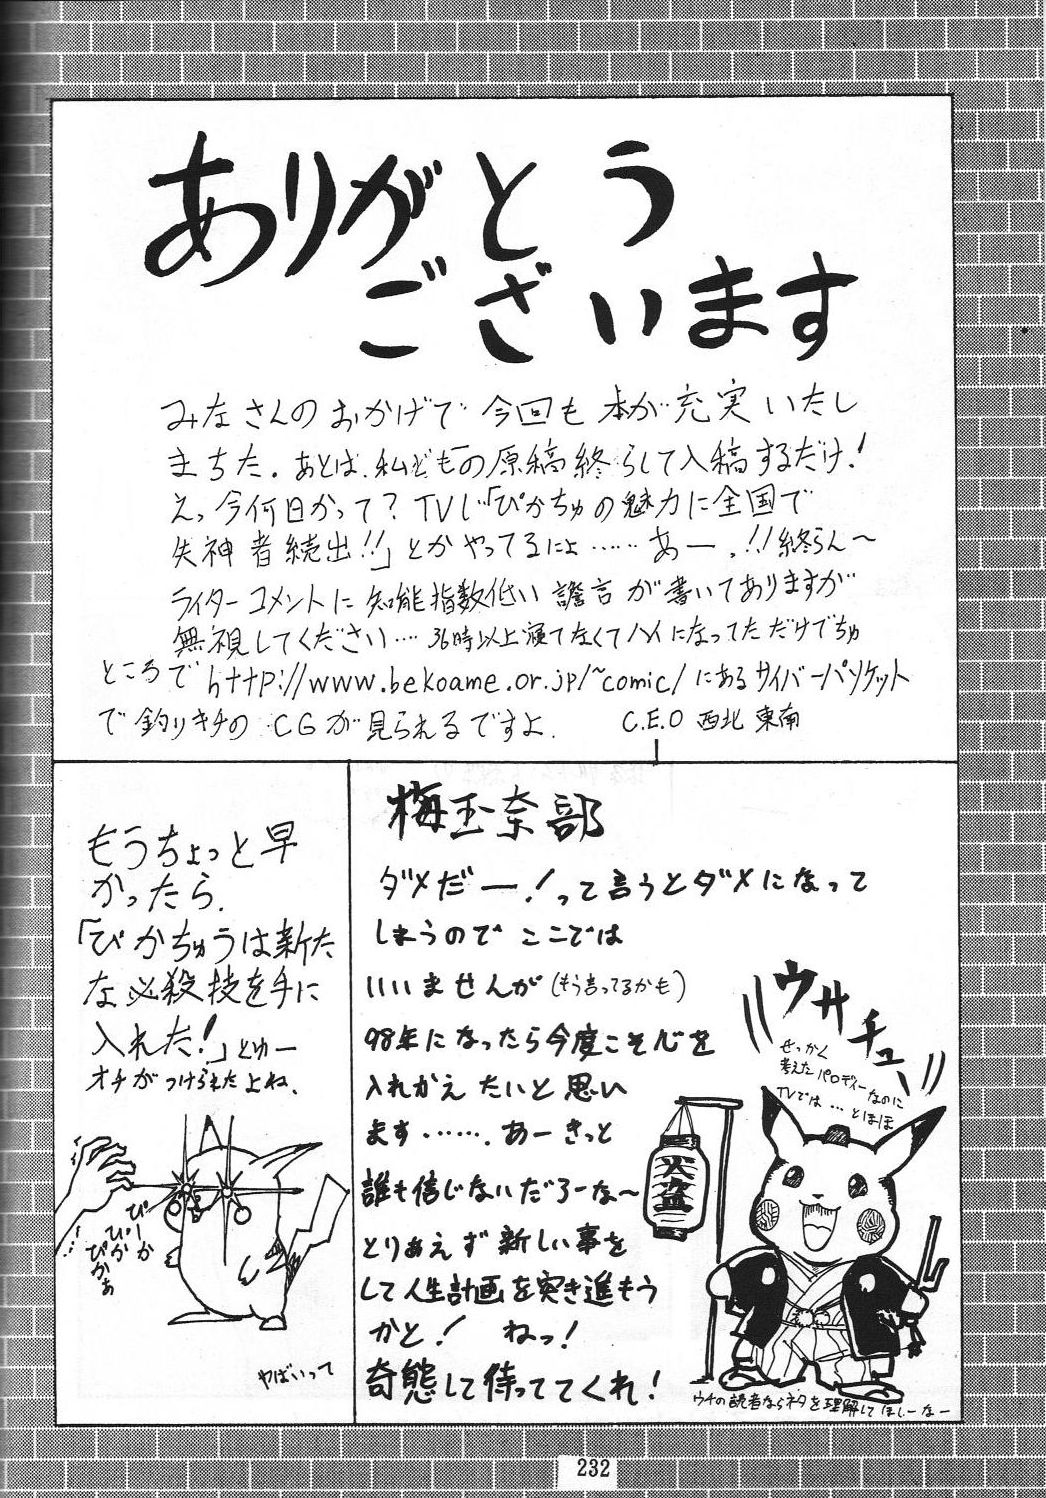 ありがとう
ございます
みなさんのおかげで今回も本が充実いたし
まちた。あとは、私どもの原稿終らして入稿するだけ!
えっ今何日かって?TVじ「ぴかちゅの魅力に全国で
失神者続出!!」とかやってるにょ……あー、!!終らん〜
ライターコメントに知能指数低い譫言が書いてありますが
無視してください…. 36時以上寝てなくてハイになってただけでちゅ
ところでhttp://www.bekoame.or.jp/~comic/にあるサイバーパソケット
で釣りキチのCGが見られるですよ.
C.E.O 西北 東南
もうちょっと早
かったら.
「ぴかちゅうは新た
な必殺技を手に
入れた!」とゆー
オチがつけられたよね、
ぴーか
ぴか
ぴかぁ
ヤばいって
梅玉奈部
ダメだー!って言うとダメになって
しまうのでここでは
いいませんが(もう言ってるかも)
98年になったら今度こそ心を
入れかえたいと思い
ます……. あーきっと
誰も信じないだろーな〜
とりあえず新しい事を
して人生計画を突き進もう
かと! ねっ!
奇態して待っててくれ!
ウサチュー
せっかく
考えたパロディーなのに
TVでは…とほほ
火盗
ウチの読者ならネタを理解してほしーなー
232